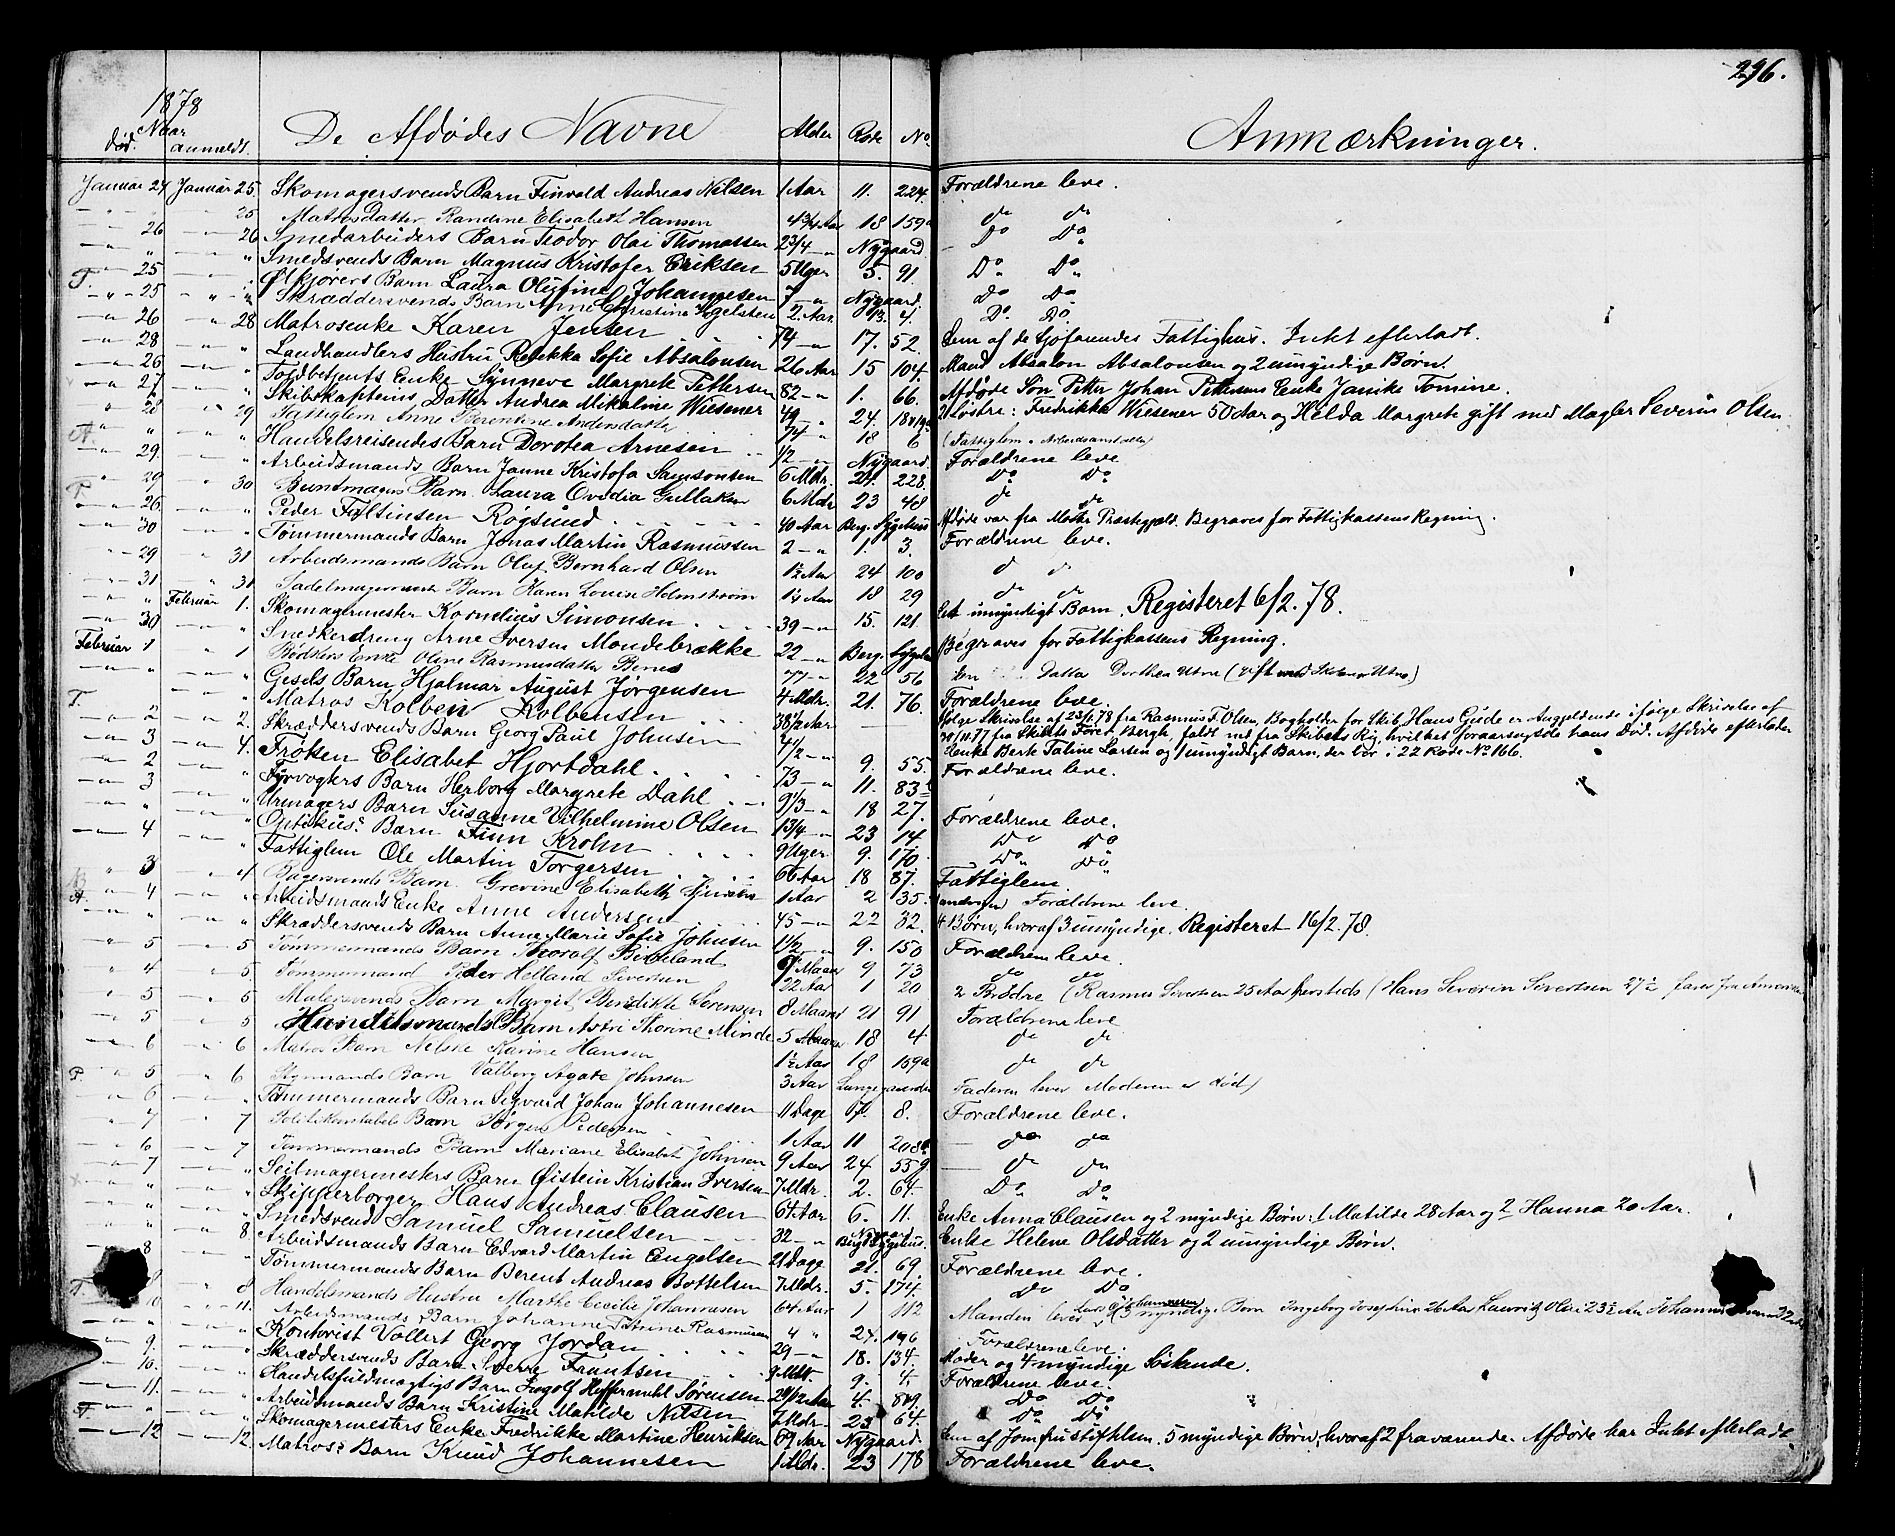 296.
1878
Naar
død. anmeldt. De Afdødes Navne Alder Rode No. Anmærkninger.
Januar 24 Januar 25. Skomagersvends Barn Finvald Andreas Nilsen 1 Aar 11. 224. Forældrene leve.
" " 25 Matros Datter Randine Elisabeth Hansen 4 3/4 Aar 18 159a do do
26 " 26 Smedarbeiders Barn Teodor Olai Thomassen 2 3/4 " Nygaard. Do Do
" " " Smedsvends Barn Magnus Kristofer Eriksen 5 Uger 5. 91. Do Do
T. " 25 " Ølkjørers Barn Laura Olufine Johannesen 7 " Nygaard. Do Do
" 25 " " Skræddersvends Barn Anne Christine 2. Aar 13. 4. Do. Do.
" 26 " 28 Matrosenke Karen Jensen 74 " 17. 52. Lem af de Sjøfarendes Fattighus. Intet efterladt.
" 28 " " Landhandlers Hustru Rebekka Sofie Absalonsen 26 Aar 15 104. Mand Absalon Absalonsen og 2 umyndige Børn.
" 26 " " Toldbetjents Enke Synneve Margrete Pettersen 82 " 1. 66. Afdøde Søn Petter Johan Pettersens Enke Janike Tomine.
" 27 " " Skibskapteins Datter Andrea Mikaline Wiesener 49 " 24. Søstre: Fredrikke Wiesener 50 Aar og Helda Margrete gift med Mægler Severin Olsen.
" 28 " 29 Fattiglem Anne Berentine Andersdatter 74 " 18 6 (Fattiglem i Arbeidsanstalten)
A. " " " Handelsreisendes Barn Dorotea Arnesen 1/2 " Nygaard. Forældrene leve.
" 29. " " Arbeidsmands Barn Janne Kristofa Samsonsen 6 Mdr. 24. 228. Do Do
" 29 " 30 Buntmagers Barn Laura Ovedia Gullaksen 6 Mdr 23 48 do do
P. " 26. " " Peder Faltinsen Røgsund 40 Aar Berg. Sygehus Afdøde var fra Præstegjæld. Begraves for Fattigkassens Regning.
" 30 " " Tømmermands Barn Jonas Martin Rasmussen 2 " 1. 3. Forældrene leve.
" 29 " 31 Arbeidsmands Barn Oluf Bernhard Olsen 1 1/2 Aar 24 100 do do
" 31 " 31 Sadelmagersvends Barn Karen Lovise Holmstrøm 1 1/4 Aar 18 29 do do
" " Februar 1. Skomagermester Kornelius Simonsen 39 " 15. 121. Et umyndigt Barn. Registeret 6/2. 78.
" 30 " " Snedkerdreng Arne Iversen Mondebrække 22 " Berg. Sygehus Begraves for Fattigkassens Regning.
Februar 1 " 1 Enke Oline Rasmusdatter 77 " 22 56 Datter Dorthea Utne (gift med Utne)
" " " Gesels Barn Hjalmar August Jørgensen 4 Mdr. 21. 76. Forældrene leve.
T. " " Matros Kolben Kolbensen 38 1/2 Aar Ifølge Skrivelse af 23/1 78 fra Rasmus F. Olsen, Bogholder for Skib, Hans Gude er Angjeldende ifølge Skrivelse af
20/11. 77 fra Skibets Fører Bergh, faldt ned fra Skibets Rig, hvilket foraarsagede hans Død. Afdøde efterlader
Enke Berte Taline Larsen og 1 umyndigt Barn, der bor i 22 Rode No 166.
" 2 " 2. Skræddersvends Barn Georg Paul Johnsen 4 1/2 " 9. 55. Forældrene leve.
" 3 " 4. Frøken Elisabet Hjortdahl. 73 " 11. 83
" 2 " " Fyrvogters Barn Herborg Margrete Dahl 9 1/3 " 18 27. Forældrene leve.
" 3 " " Urmagers Barn Susanne Vilhelmine Olsen 1 3/4 " 23 14 Do Do
" " " Optikus's Barn Finn Krohn 9 Uger. 9. 170. Do Do
" 4 " " Fattiglem Ole Martin Torgersen 66 Aar 18 87. Fattiglem.
" 3 " 4 Bagersvends Barn Grevine Elisabeth 1 Aar 2 35. Forældrene leve.
A. " 4 " " Arbeidsmands Enke Anne Andersen 45 " 22 32. 4 Børn, hvoraf 3 umyndige. Registeret 16/2. 78.
" " " Skræddersvends Barn Anne Marie Sofie Johnsen 1 1/2 " 9. 150 Forældrene leve.
" 5 " 5 Tømmermands Barn Thoralf Birkeland 9 Maan 9 73 do do
" 4 " 5 Tømmermand Peder Helland Sivertsen 22 Aar 1 20 2 Brødre (Rasmus Sivertsen 25 Aar hersteds (Hans Severin Sivertsen 27 farer fra Amerika
" 5 " 5 Malersvends Barn Margit Bendikte Sørensen 8 Maaned 21 91 Forældrene leve
" 5 " 5 Handelsmands Barn Astri Thorine Minde 5 Maaned 18 4 do do
" 6 " 6 Matros Barn Nelske Karine Hansen 1 1/2 Aar 18 159a do do
P. " 5 " 6 Styrmands Barn Valborg Agate Johnsen 3 Aar Lungegaarden Faderen lever Moderen er død)
" 6 " " Tømmermands Barn Sigvard Johan Johannesen 11 Dage 8. Forældrene leve.
" 7 " 7 Politikonstabels Barn Jørgen Pedersen 1 Aar 11 208 do do
" 6 " 7 Tømmermands Barn Mariane Elisabet Johnsen 9 Aar 24 559 do do
" 7 " " Seilmagermesters Barn Øistein Kristian Iversen 7 Mdr. 2. 64. Do Do
" " " Skipperborger Hans Andreas Clausen 64 Aar 6. 11. Enke Anna Clausen og 2 myndige Børn: 1 Matilde 28 Aar og 2 Hanna 20 Aar.
" " " Smedsvend Samuel Samuelsen 32 " Bergs Sygehus. Enke Helene Olsdatter og 2 umyndige Børn.
" " 8. Arbeidsmands Barn Edvard Martin Engelsen 21 Dage 21. 69 Forældrene leve.
" 8 " " Tømmermands Barn Berent Andreas Bottelsen 7 Mdr. 5. 174. Do Do
T. 8 " 8 Handelsmands Hustru Marthe Cecilie Johannesen 64 Aar 1 112 Manden lever myndige Børn Ingeborg Josephine 26 Aar Lauritz Olai 23 Aar Johannes
" 10. " 11. Arbeidsmands Barn Johanne Petrine Rasmussen 4 " 24. 196 Forældrene leve.
" " " Kontorist Vollert Georg Jordan 29 " 18. 134. Moder og 4 myndige Søskende.
" 9. " " Skræddersvends Barn Sverre Frantsen 9 Mdr. 9. 4. Forældrene leve.
" 10. " " Handelsfuldmægtigs Barn Ingolf Heffermehl Sørensen 2 1/2 Aar 4. 849. Do Do
" 11. " " Arbeidsmands Barn Kristine Matilde Nilsen 7 Mdr. 23 64. Do Do
T. " " " Skomagermesters Enke Fredrikke Martine Henriksen 69 Aar Nygaard. Lem af Jomfrustiftelsen. 5 myndige Børn, hvoraf 2 fraværende. Afdøde har Intet efterladt.
" 12 " 12. Matros's Barn Knud Johannesen 1 Mdr. 23 178 Forældrene leve.